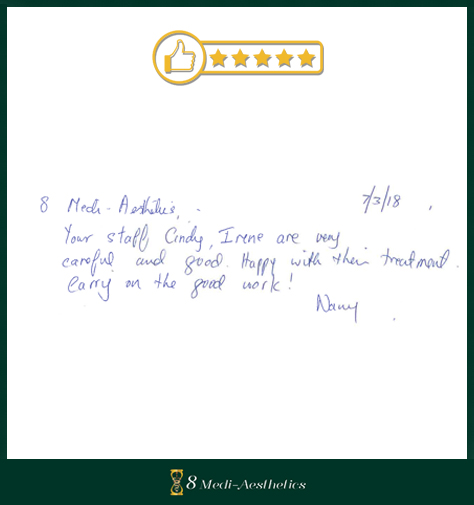 8 Medi-Aesthetics, 7/3/18
Your staff, Cindy, Irene are very
careful and good. Happy with their treatment.
Carry on the good work!
Nancy
8 Medi-Aesthetics